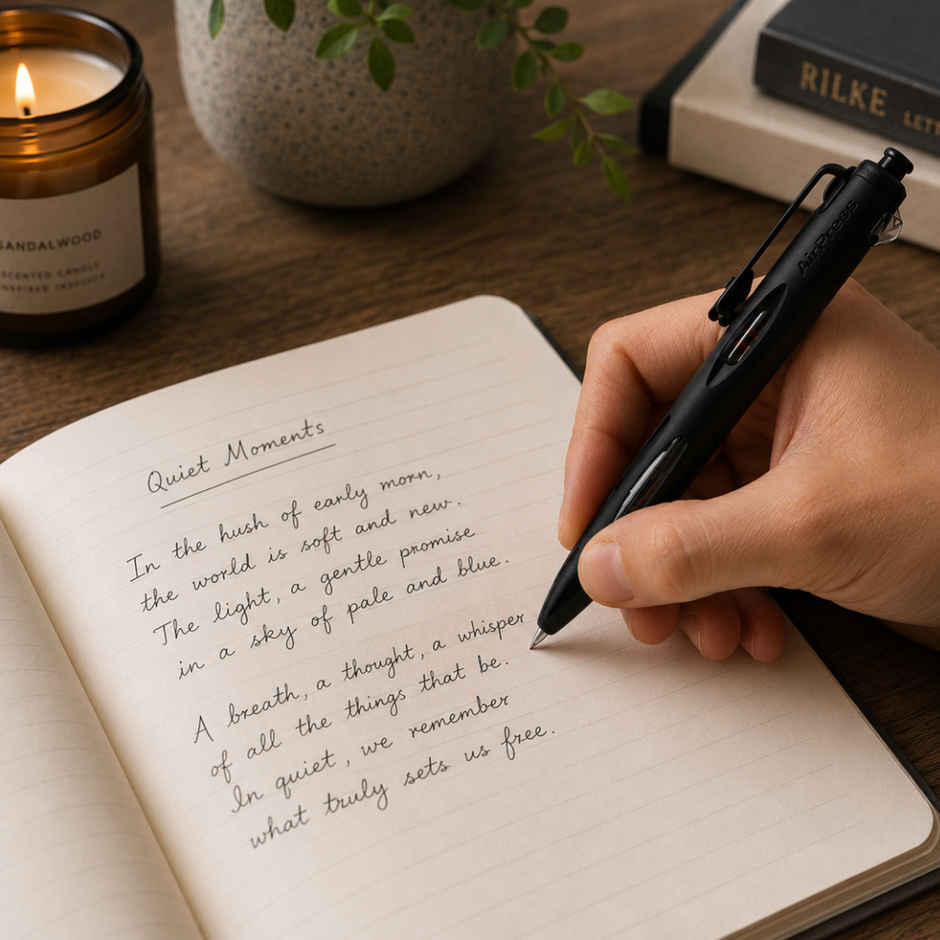 SANDALWOOD
SCENTED CANDLE
RILKE
AirPress
Quiet Moments
In the hush of early morn,
the world is soft and new.
The light, a gentle promise
in a sky of pale and blue.
A breath, a thought, a whisper
of all the things that be.
In quiet, we remember
what truly sets us free.